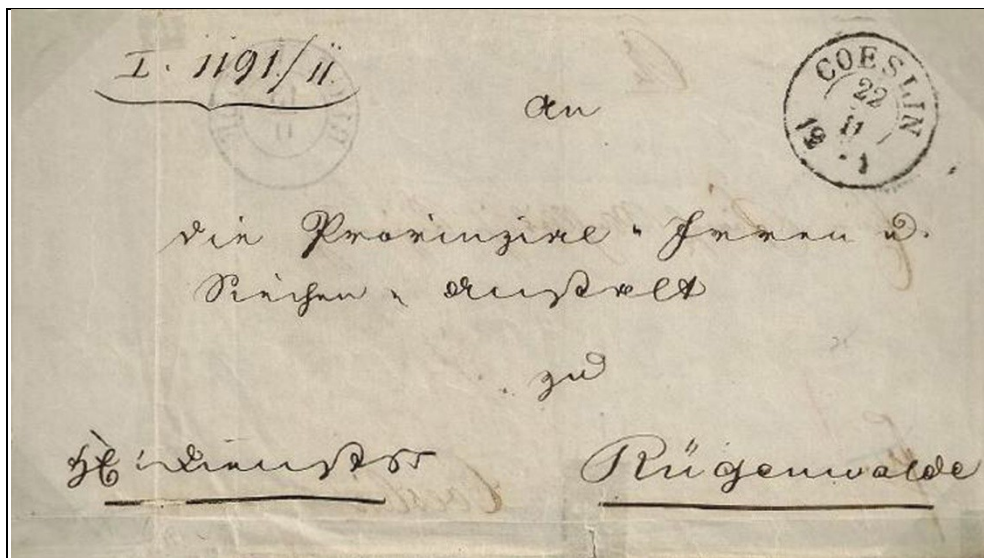 I. 1191/11
COESLIN
22
11
An
die Provinzial-Irren u.
Siechen-Anstalt
zu
Rügenwalde